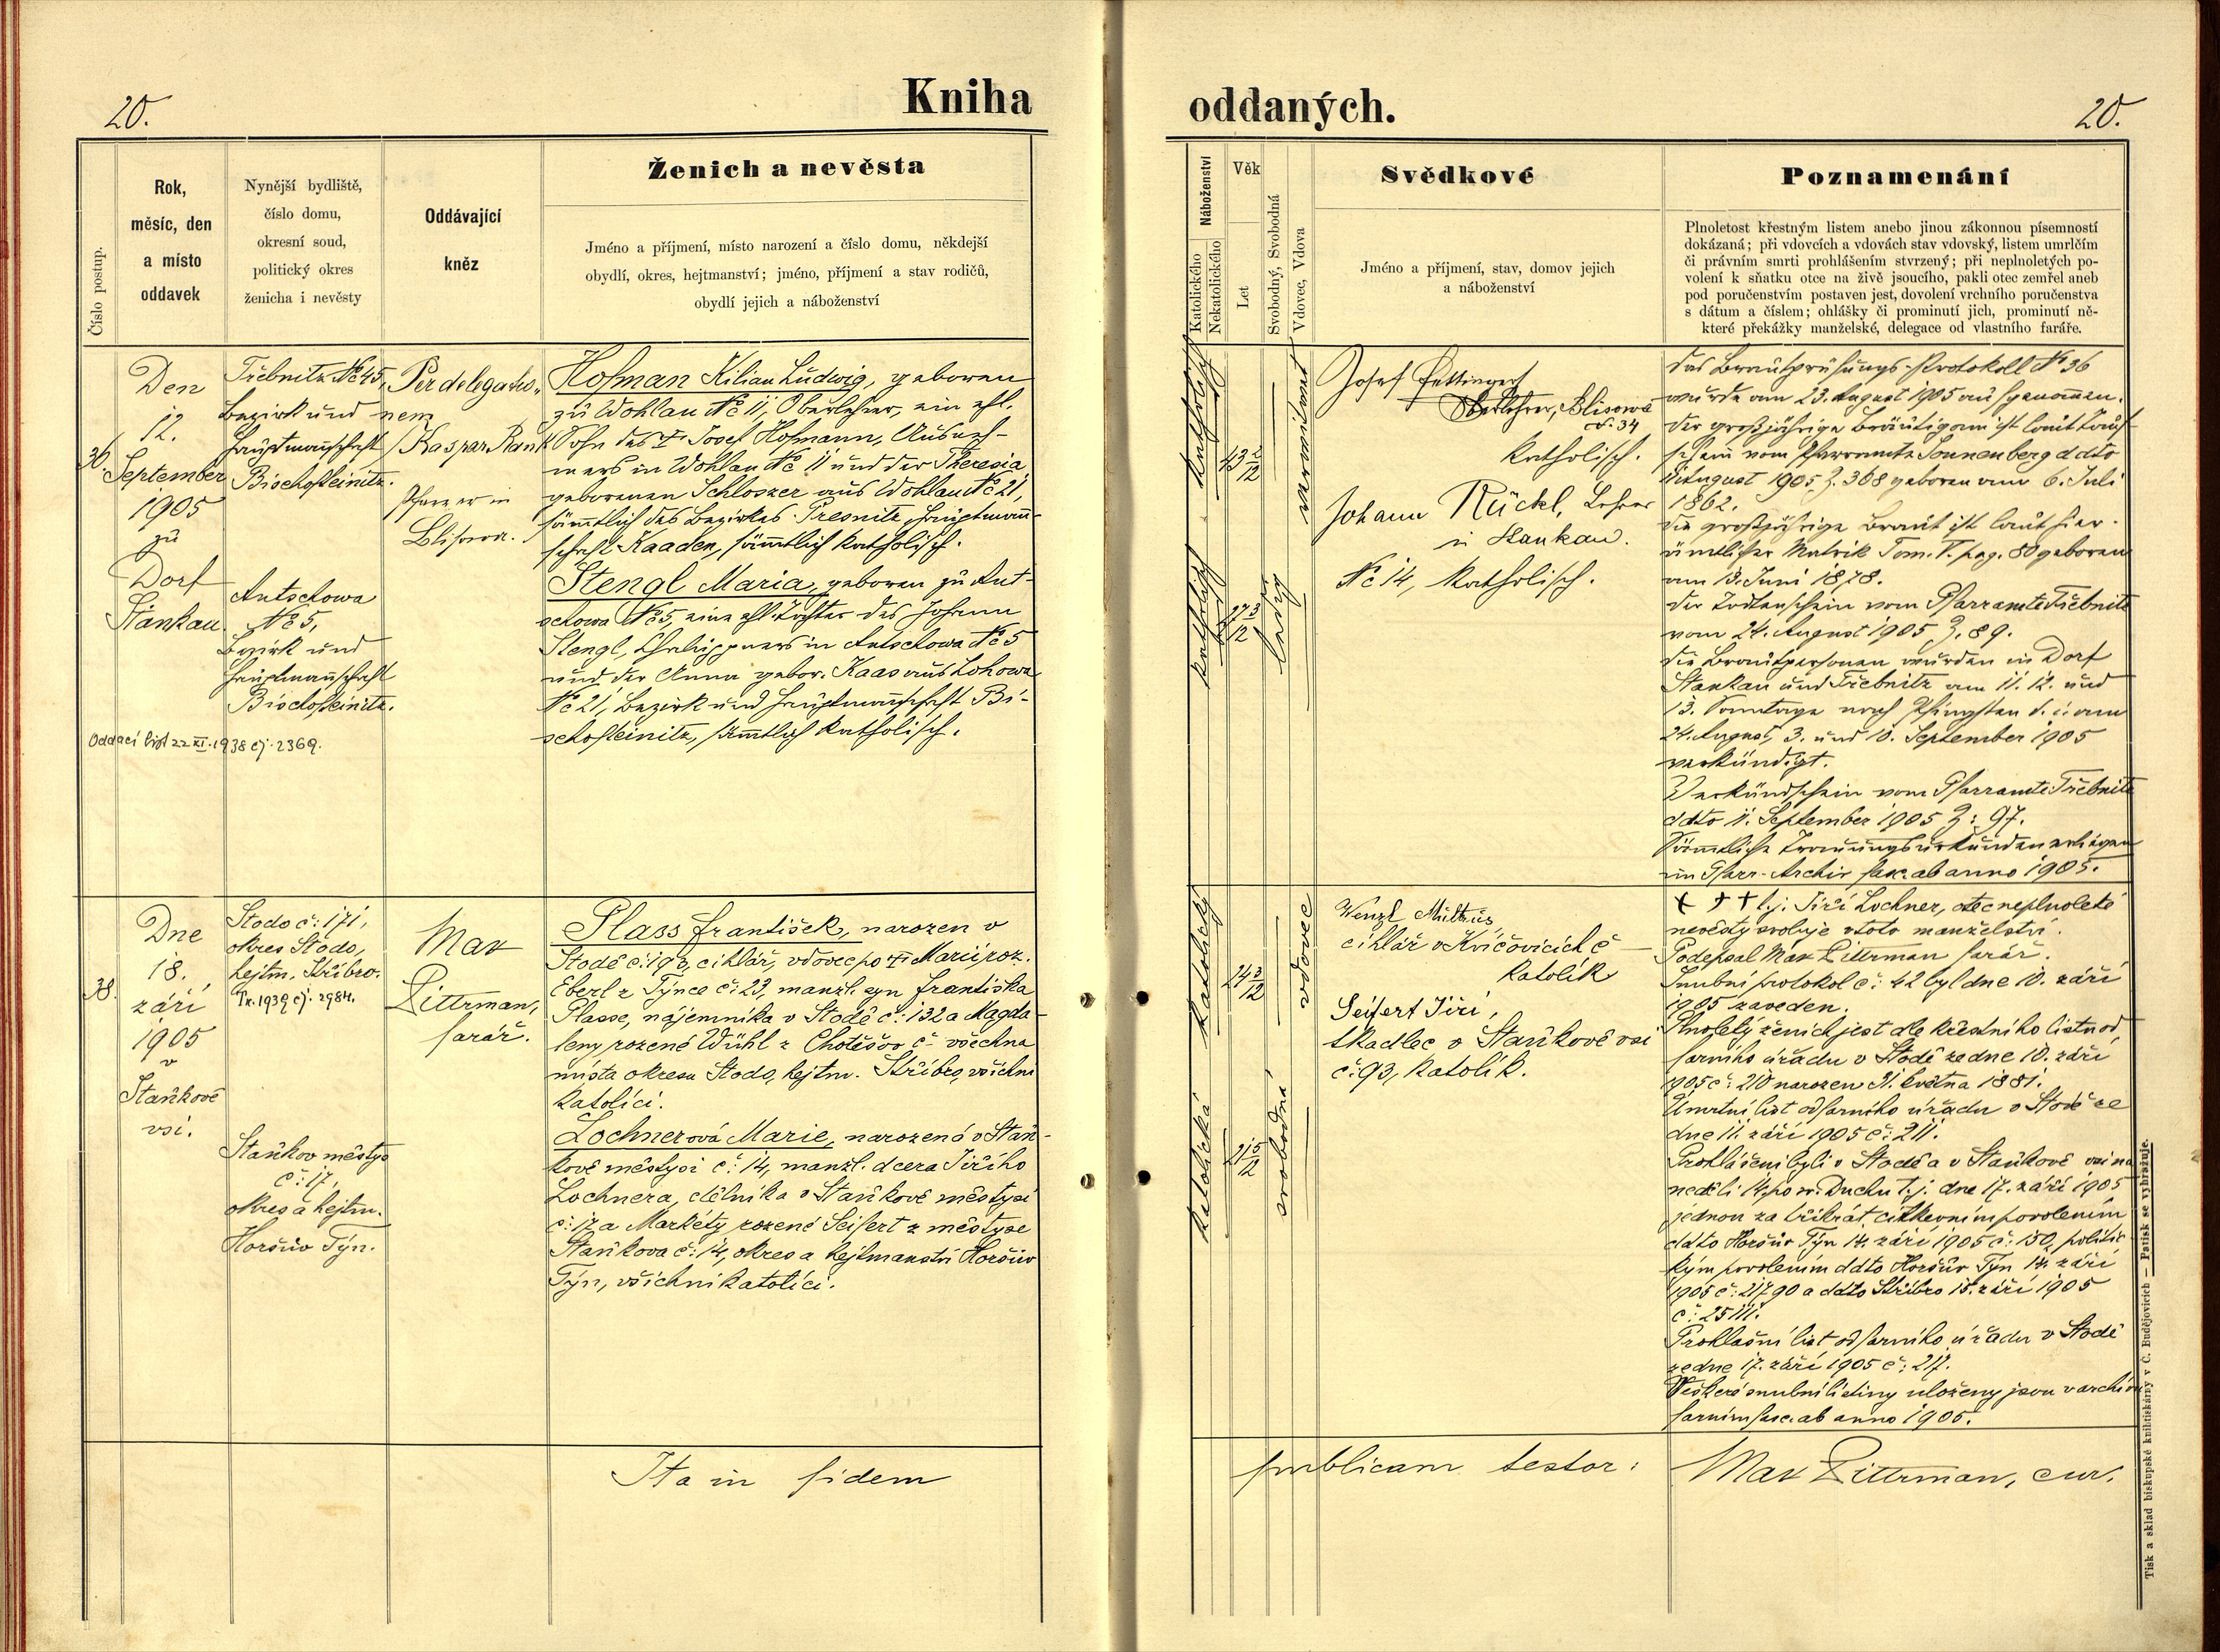 20.
Kniha
oddaných.
20.
Číslo postup.
Rok,
měsíc, den
a místo
oddavek
Nynější bydliště,
číslo domu,
okresní soud,
politický okres
ženicha i nevěsty
Oddávající
kněz
Ženich a nevěsta
Jméno a příjmení, místo narození a číslo domu, někdejší
obydlí, okres, hejtmanství; jméno, příjmení a stav rodičů,
obydlí jejich a náboženství
Náboženství
Katolického
Nekatolického
Věk
Let
Svobodný, Svobodná
Vdovec, Vdova
Svědkové
Jméno a příjmení, stav, domov jejich
a náboženství
Poznamenání
Plnoletost křestným listem anebo jinou zákonnou písemností
dokázaná; při vdovcích a vdovách stav vdovský, listem umrlčím
či právním smrti prohlášením stvrzený; při neplnoletých po-
volení k sňatku otce na živě jsoucího, pakli otec zemřel aneb
pod poručenstvím postaven jest, dovolení vrchního poručenstva
s dátum a číslem; ohlášky či prominutí jich, prominutí ně-
které překážky manželské, delegace od vlastního faráře.
36.
Den
12.
September
1905
zu
Dorf
Stankau.
Třebnitz № 45,
Bezirk und
Hauptmannschaft
Bischofteinitz.
Antschowa
№ 5,
Bezirk und
Hauptmannschaft
Bischofteinitz.
Oddací list 22 XI. 1938 čj. 2369.
Per delegatio-
nem
Kaspar Rank
Pfarrer in
Blisowa.
Hofman Kilian Ludwig, geboren
zu Wohlau № 11, Oberlehrer, ein ehl.
Sohn des † Josef Hofmann, Ausneh-
mers in Wohlau № 11 und der Theresia
geborenen Schloszer aus Wohlau № 21,
sämmtlich des Bezirkes Presnitz, Hauptmann-
schaft Kaaden, sämmtlich katholisch.
Stengl Maria, geboren zu Ant-
schowa № 5, eine ehl. Tochter des Johann
Stengl, in Antschowa № 5
und der Anna gebor. Kaas aus Lohowa
№ 21, Bezirk und Hauptmannschaft Bi-
schofteinitz, sämtlich katholisch.
katholisch
43 2/12
verwitwet
katholisch
27 3/12
ledig
Josef
Oberlehrer, Blisowa
N. 34
katholisch.
Johann Rückl, Lehrer
in Stankau.
№ 14, katholisch.
das Brautprüfungs-Protokoll № 36
wurde am 23. August 1905 aufgenommen.
Der großjährige Bräutigam ist laut Tauf-
schein vom Pfarramte Sonnenberg ddto
August 1905 Z. 368 geboren am 6. Juli
1862.
Die großjährige Braut ist laut hier-
ämtlicher Matrik Tom. V. pag. 80 geboren
am 13. Juni 1878.
Der Todtenschein vom Pfarramte Třebnitz
vom 24. August 1905 Z. 89.
Die Brautpersonen wurden in Dorf
Stankau und Třebnitz am 11. 12. und
13. Sonntage nach Pfingsten d. i. am
24. August, 3. und 10. September 1905
verkündigt.
Verkündschein vom Pfarramte Třebnitz
ddto 11. September 1905 Z: 97.
Sämmtliche Trauungsurkunden erliegen
im Pfarr-Archiv fasc. ab anno 1905.
38.
Dne
18.
září
1905
v
Staňkově
vsi.
Stodo č: 171,
okres Stodo,
hejtm. Stříbro.
Tr. 1939 čj. 2984.
Staňkov městys
č: 17,
okres a hejtm.
Horšův Týn.
Max
Zittrman,
farář.
Plass František, narozen v
Stodě č: 193, cihlář, vdovec po † Marii roz.
Eberl z Týnce č: 23, manžl. syn Františka
Plasse, nájemníka v Stodě č: 132 a Magda-
leny rozené Wühl z Chotěšov č - všechna
místa okresu Stodo, hejtm. Stříbro, všichni
katolíci.
Lochnerová Marie, narozená v Staň-
kově městysi č: 14, manžl. dcera Jiřího
Lochnera, dělníka v Staňkově městysi
č: 17 a Markéty rozené Seifert z městyse
Staňkova č: 14, okres a hejtmanství Horšův
Týn, všichni katolíci.
katolický
24 3/12
vdovec
katolická
21 5/12
svobodná
Wenzl
cihlář v Kvíčovicích č -
katolík
Seifert Jiří,
tkadlec v Staňkově vsi
č: 93, katolík.
† † † t.j. Jiří Lochner, otec neplnoleté
nevěsty svoluje v toto manželství.
Podepsal Max Zittrman farář.
Snubní protokol č: 42 byl dne 10. září
1905 zaveden.
Plnoletý ženich jest dle křestního listu od
farního úřadu v Stodě ze dne 10. září
1905 č: 210 narozen 31. května 1881.
Úmrtní list od farního úřadu v Stodě ze
dne 11. září 1905 č: 211.
Prohlášeni byli v Stodě a v Staňkově vsi na
neděli 14. po sv. Duchu t.j. dne 17. září 1905
jednou za třikrát, církevním povolením
ddto Horšův Týn 14. září 1905 č: 150, politic-
kým povolením ddto Horšův Týn 14. září
1905 č: 21790 a ddto Stříbro 15. září 1905
č: 25111.
Prohlašní list od farního úřadu v Stodě
ze dne 17. září 1905 č: 217.
Veškeré snubní listiny uloženy jsou v archivu
farním fasc. ab anno 1905.
Ita in fidem
publicam testor:
Max Zittrman, cur.
Tisk a sklad biskupské knihtiskárny v Č. Budějovicích — Patisk se vyhražuje.